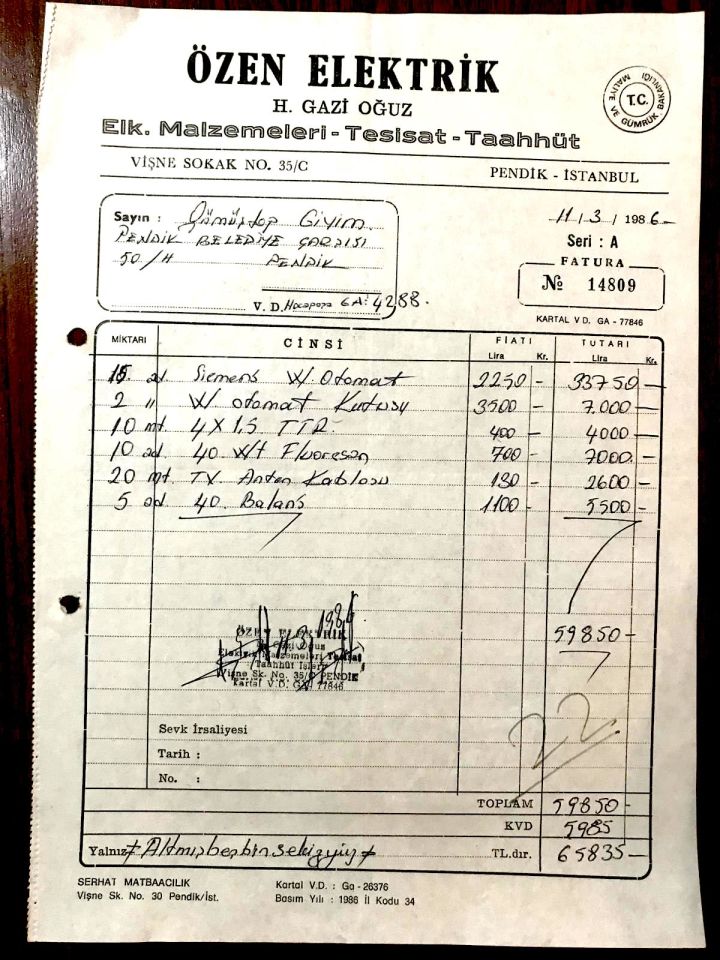 ÖZEN ELEKTRİK
H. GAZİ OĞUZ
Elk. Malzemeleri - Tesisat - Taahhüt
T.C. MALİYE VE GÜMRÜK BAKANLIĞI
VİŞNE SOKAK NO. 35/C
PENDİK - İSTANBUL
Sayın : Giyim
PENDİK BELEDİYE ÇARŞISI
50/H PENDİK
V. D. GA: 4288.
11/3/1986-
Seri : A
FATURA
№ 14809
KARTAL V.D. GA - 77846
MİKTARI CİNSİ FİATI TUTARI
Lira Kr. Lira Kr.
15 ad Siemens W. Otomat 2250 - 33750 -
2 " W otomat Kutusu 3500 - 7.000 -
10 mt 4X1,5 TTR 400 - 4000 -
10 ad 40 W/t Fluoresan 700 - 7000 -
20 mt TV Anten Kablosu 130 - 2600 -
5 ad 40 Balans 1100 - 5500 -
59850 -
11.3.1986
ÖZEN ELEKTRİK
H. Gazi Oğuz
Elektrik Malzemeleri Tesisat
Taahhüt İşleri
Vişne Sk. No. 35/C PENDİK
Kartal V.D. GA 77846
22
Sevk İrsaliyesi
Tarih :
No. :
TOPLAM 59850 -
KVD 5985
Yalnız Altmışbeşbinsekizyüz TL.dır. 65835 -
SERHAT MATBAACILIK
Vişne Sk. No. 30 Pendik/İst.
Kartal V.D. : Ga - 26376
Basım Yılı : 1986 İl Kodu 34